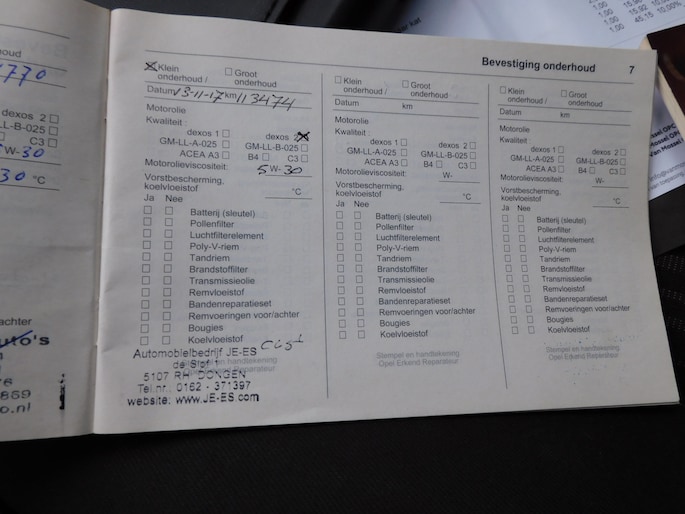 Bevestiging onderhoud 7
Klein onderhoud /
Groot onderhoud
Datum 13-11-17 km 113474
Motorolie
Kwaliteit :
dexos 1
dexos 2
GM-LL-A-025
GM-LL-B-025
ACEA A3
B4
C3
Motorolieviscositeit: 5 W- 30
Vorstbescherming,
koelvloeistof °C
Ja Nee
Batterij (sleutel)
Pollenfilter
Luchtfilterelement
Poly-V-riem
Tandriem
Brandstoffilter
Transmissieolie
Remvloeistof
Bandenreparatieset
Remvoeringen voor/achter
Bougies
Koelvloeistof
Automobielbedrijf JE-ES
de Slof 1
5107 RH DONGEN
Tel.nr. 0162 - 371397
website: www.JE-ES.com
Klein onderhoud /
Groot onderhoud
Datum km
Motorolie
Kwaliteit :
dexos 1
dexos 2
GM-LL-A-025
GM-LL-B-025
ACEA A3
B4
C3
Motorolieviscositeit: W-
Vorstbescherming,
koelvloeistof °C
Ja Nee
Batterij (sleutel)
Pollenfilter
Luchtfilterelement
Poly-V-riem
Tandriem
Brandstoffilter
Transmissieolie
Remvloeistof
Bandenreparatieset
Remvoeringen voor/achter
Bougies
Koelvloeistof
Stempel en handtekening
Opel Erkend Reparateur
Klein onderhoud /
Groot onderhoud
Datum km
Motorolie
Kwaliteit :
dexos 1
dexos 2
GM-LL-A-025
GM-LL-B-025
ACEA A3
B4
C3
Motorolieviscositeit: W-
Vorstbescherming,
koelvloeistof °C
Ja Nee
Batterij (sleutel)
Pollenfilter
Luchtfilterelement
Poly-V-riem
Tandriem
Brandstoffilter
Transmissieolie
Remvloeistof
Bandenreparatieset
Remvoeringen voor/achter
Bougies
Koelvloeistof
Stempel en handtekening
Opel Erkend Reparateur